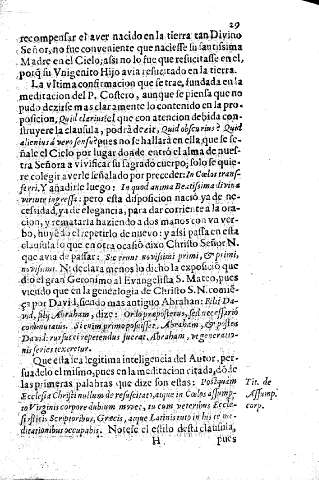 29
recompensar el aver nacido en la tierra tan Divino
Señor, no fue conveniente que naciesse su santissima
Madre en el Cielo; assi no lo fue que resucitasse en el,
porq̃ su Vnigenito Hijo avia resucitado en la tierra.
La vltima confirmacion que se trae, fundada en la
meditacion del P. Costero, aunque se piensa que no
pudo dezirse mas claramente lo contenido en la pro-
posicion, Quid clarius? el que con atencion debida con-
struyere la clausula, podrà dezir, Quid obscurius? Quid
alienius à vero sensu? pues no se hallarà en ella que se se-
ñale el Cielo por lugar donde entrò el alma de nues-
tra Señora à vivificar su sagrado cuerpo; solo se quie-
re colegir averle señalado por atecceder: In Cœlos transf-
ferri. Y añadirle luego: In quod anima Beatissima divina
virtute ingressa: pero esta disposicion naciò ya de ne-
cessidad, ya de elegancia, para dar corriente à la ora-
cion, y rematarla huziendo à dos manos con vn ver-
bo, huyẽdo el repetirlo de nuevo: y alsi passa en esta
clausula lo que en otra ocasiõ dixo Christo Señor N.
que avia de passar: Sic erunt novissimi primi, & primi,
novissimi. Ni declara menos lo dicho la exposiciõ que
diò el gran Geronimo al Evangelista S. Mateo, pues
viendo que en la genealogia de Christo S. N. comiẽ-
ça por David, siendo mas antiguo Abraham: Filij Da-
vid, filij Abraham, dize: Ordo præposterus, sed necessario
commutatus. Si enim primo posuisset Abraham, & postea
David: rursus ei repetendus fuerat Abraham, vt generatio-
nis series texeretur.
Que esta sea legitima inteligencia del Autor, per-
suadelo el mismo, pues en la meditacion citada, dõ de
las primeras palabras que dize son estas: Postquam
Ecclesia Christi nullum de resuscitato, atque in Cœlos assump-
to Virginis corpore dubium movet, tu cum veteribus Eccle-
siasticis Scriptoribus, Græcis, atque Latinis tuto in his te me-
ditationibus occupabis. Notese el estilo desta clausula,
H pues
Tit. de
Assump.
corp.